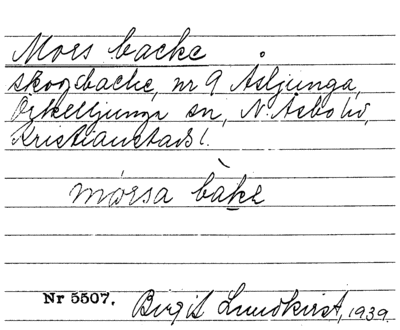 Mors backe
skogsbacke, nr 9 Åsljunga,
Örkelljunga sn, N. Åsbo hd,
Kristianstads l.
mórsa bàkε
Nr 5507. Birgit Lundkvist, 1939.